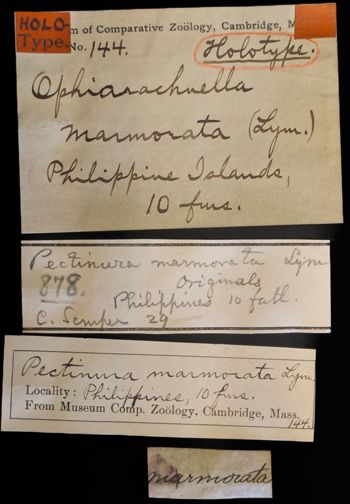 HOLO-
Type.
m of Comparative Zoölogy, Cambridge, M
No. 144.
Holotype.
Ophiarachnella
marmorata (Lym.)
Philippine Islands,
10 fms.
Pectinura marmorata Lym
Originals
878.
Philippines 10 fath.
C. Semper 29
Pectinura marmorata Lym.
Locality: Philippines, 10 fms.
From Museum Comp. Zoölogy, Cambridge, Mass.
144.
marmorata